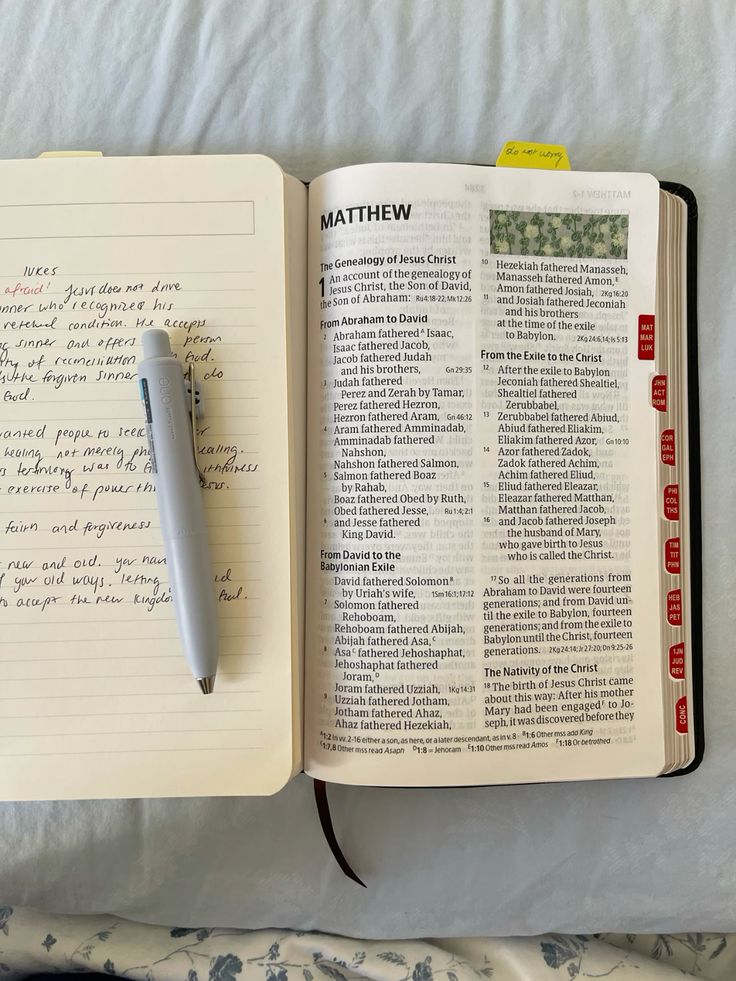 do not worry
lukes
afraid! Jesus does not drive
sinner who recognizes his
renewal condition. He accepts
sinner and offers person
of reconciliation God.
the forgiven sinner do
God.
wanted people to seek
healing, not merely healing.
testimony was to
exercise of power
faith and forgiveness
new and old. you
your old ways. letting
to accept the new kingdom
MATTHEW 1-2
MATTHEW
The Genealogy of Jesus Christ
1 An account of the genealogy of
Jesus Christ, the Son of David,
the Son of Abraham: Ru4:18-22; Mk12:26
From Abraham to David
2 Abraham fathered A Isaac,
Isaac fathered Jacob,
Jacob fathered Judah
and his brothers, Gn 29:35
3 Judah fathered
Perez and Zerah by Tamar,
Perez fathered Hezron,
Hezron fathered Aram, Gn 46:12
4 Aram fathered Amminadab,
Amminadab fathered
Nahshon,
Nahshon fathered Salmon,
5 Salmon fathered Boaz
by Rahab,
Boaz fathered Obed by Ruth,
Obed fathered Jesse, Ru 4:4; 2:1
6 and Jesse fathered
King David.
From David to the
Babylonian Exile
David fathered Solomon B
by Uriah's wife, 1Sm 16:1; 17:12
7 Solomon fathered
Rehoboam,
Rehoboam fathered Abijah,
Abijah fathered Asa, C
8 Asa C fathered Jehoshaphat,
Jehoshaphat fathered
Joram, D
Joram fathered Uzziah, 1Kg 14:31
9 Uzziah fathered Jotham,
Jotham fathered Ahaz,
Ahaz fathered Hezekiah,
10 Hezekiah fathered Manasseh,
Manasseh fathered Amon, E
Amon fathered Josiah, 2Kg 16:20
11 and Josiah fathered Jeconiah
and his brothers
at the time of the exile
to Babylon. 2Kg 24:6,14; Is 5:13
From the Exile to the Christ
12 After the exile to Babylon
Jeconiah fathered Shealtiel,
Shealtiel fathered
Zerubbabel,
13 Zerubbabel fathered Abiud,
Abiud fathered Eliakim,
Eliakim fathered Azor, Gn 10:10
14 Azor fathered Zadok,
Zadok fathered Achim,
Achim fathered Eliud,
15 Eliud fathered Eleazar,
Eleazar fathered Matthan,
Matthan fathered Jacob,
16 and Jacob fathered Joseph
the husband of Mary,
who gave birth to Jesus
who is called the Christ.
17 So all the generations from
Abraham to David were fourteen
generations; and from David un-
til the exile to Babylon, fourteen
generations; and from the exile to
Babylon until the Christ, fourteen
generations. 2Kg 24:14; Jr 27:20; Dn 9:25-26
The Nativity of the Christ
18 The birth of Jesus Christ came
about this way: After his mother
Mary had been engaged F to Jo-
seph, it was discovered before they
A 1:2 In vv. 2-16 either a son, as here, or a later descendant, as in v. 8 B 1:6 Other mss add King
C 1:7,8 Other mss read Asaph D 1:8 = Jehoram E 1:10 Other mss read Amos F 1:18 Or betrothed
MAT
MAR
LUK
JHN
ACT
ROM
COR
GAL
EPH
PHI
COL
THS
TIM
TIT
PHN
HEB
JAS
PET
1JN
JUD
REV
CONC